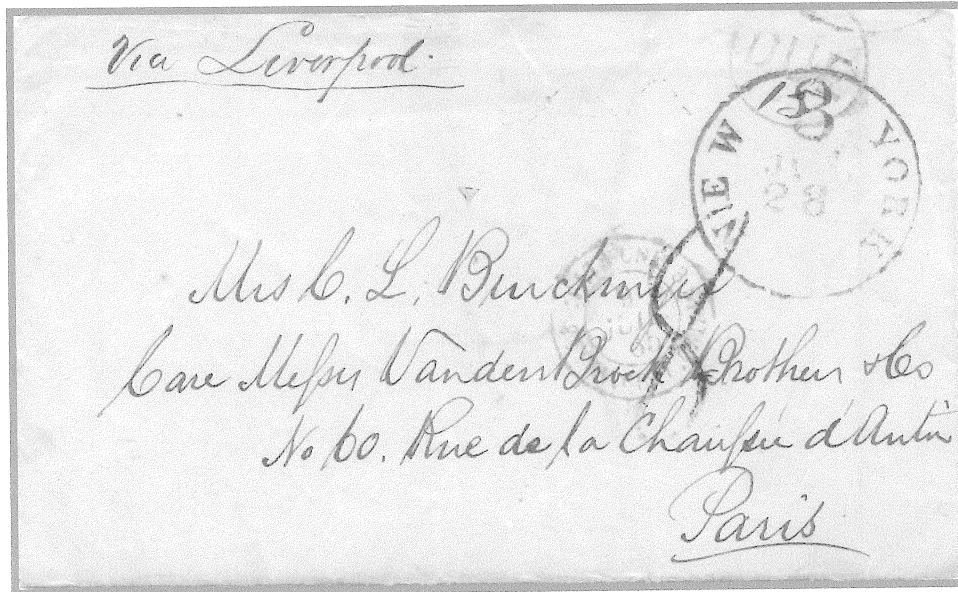 Via Liverpool.
NEW YORK
Mrs C. L. Burckmyer
Care Messrs VandenBroek Brothers & Co
No 60. Rue de la Chaussée d'Antin
Paris